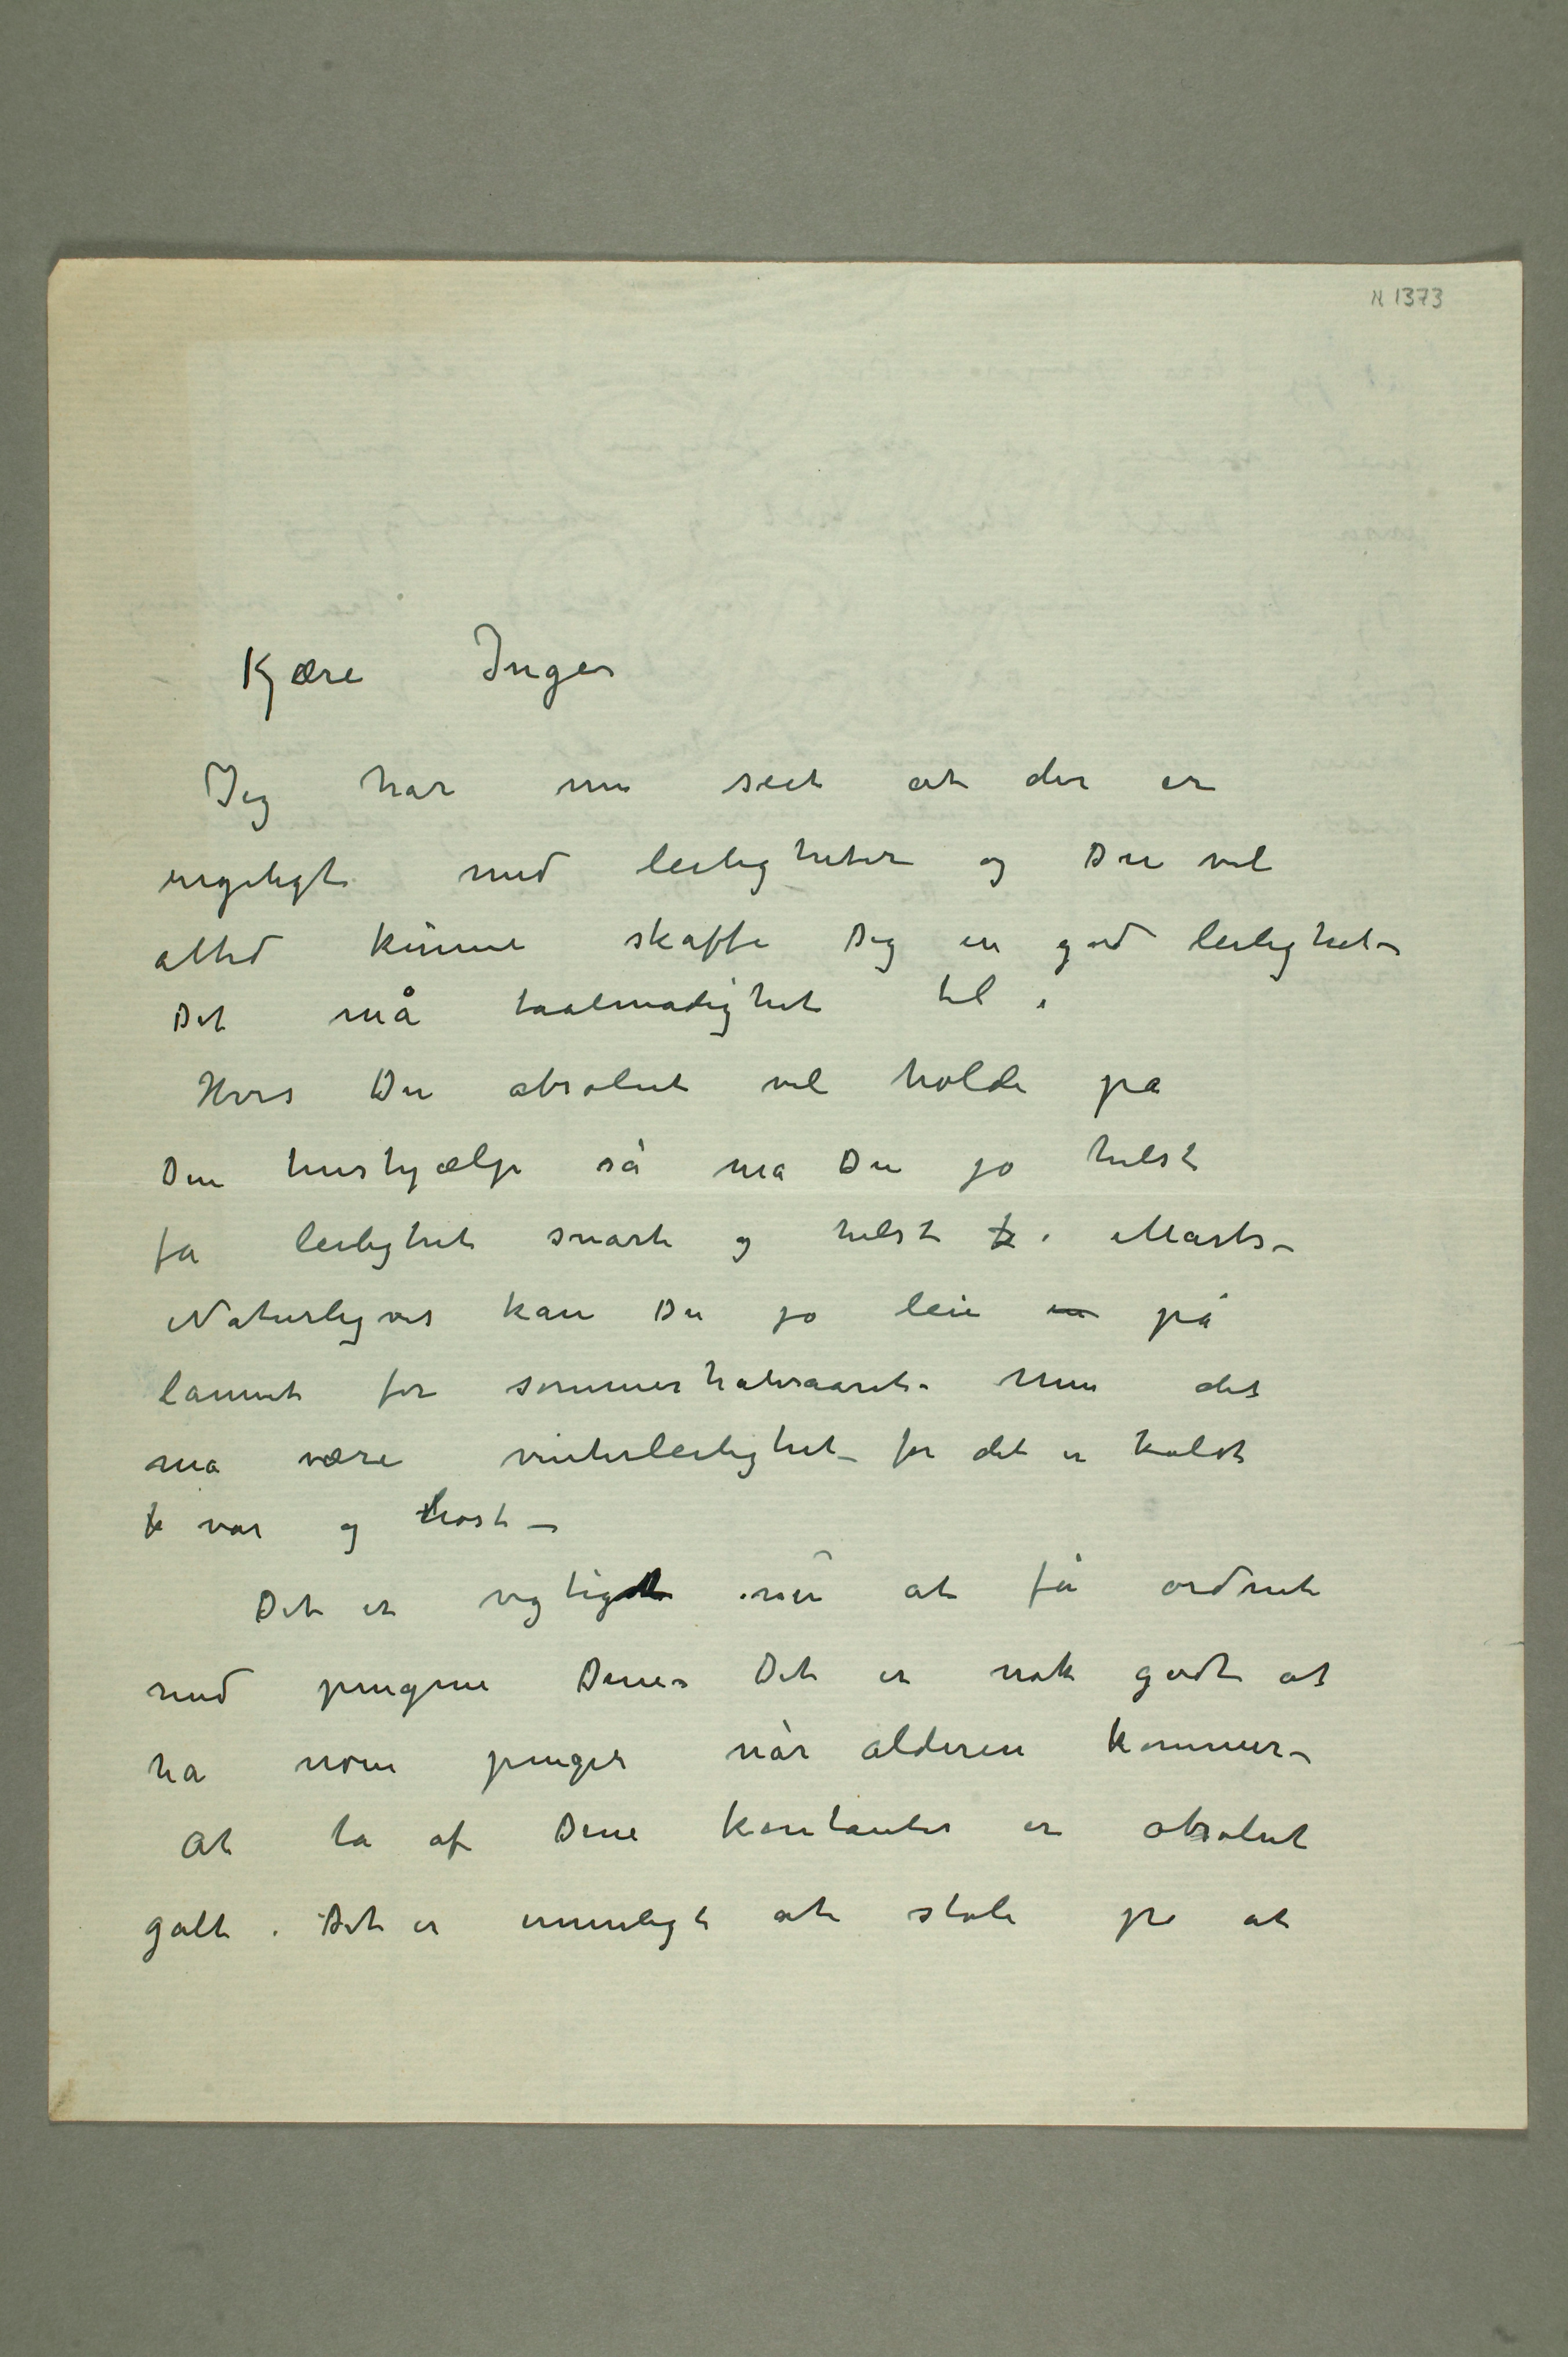 N 1373
Kjære Inger
Jeg har nu seet at der er
urgeligt med leiligheter og Du vil
altid kunne skaffe Dig en god leilighet –
Det må taalmodighet til.
Hvis Du absolut vil holde pa
Din hushjælp så ma Du jo helst
fa leilighet snart og helst i Marts –
Naturligvis kan Du jo leie en på
lannet for sommerhalvaaret – men det
ma være vinterleilighet – for det er koldt
var og høst –
Det er vigtigt nu at få ordnet
med pengene Dine – Det er nok godt at
ha noen penger når alderen kommer –
At ta af Dine kontanter er absolut
galt. Det er umuligt at stole på at